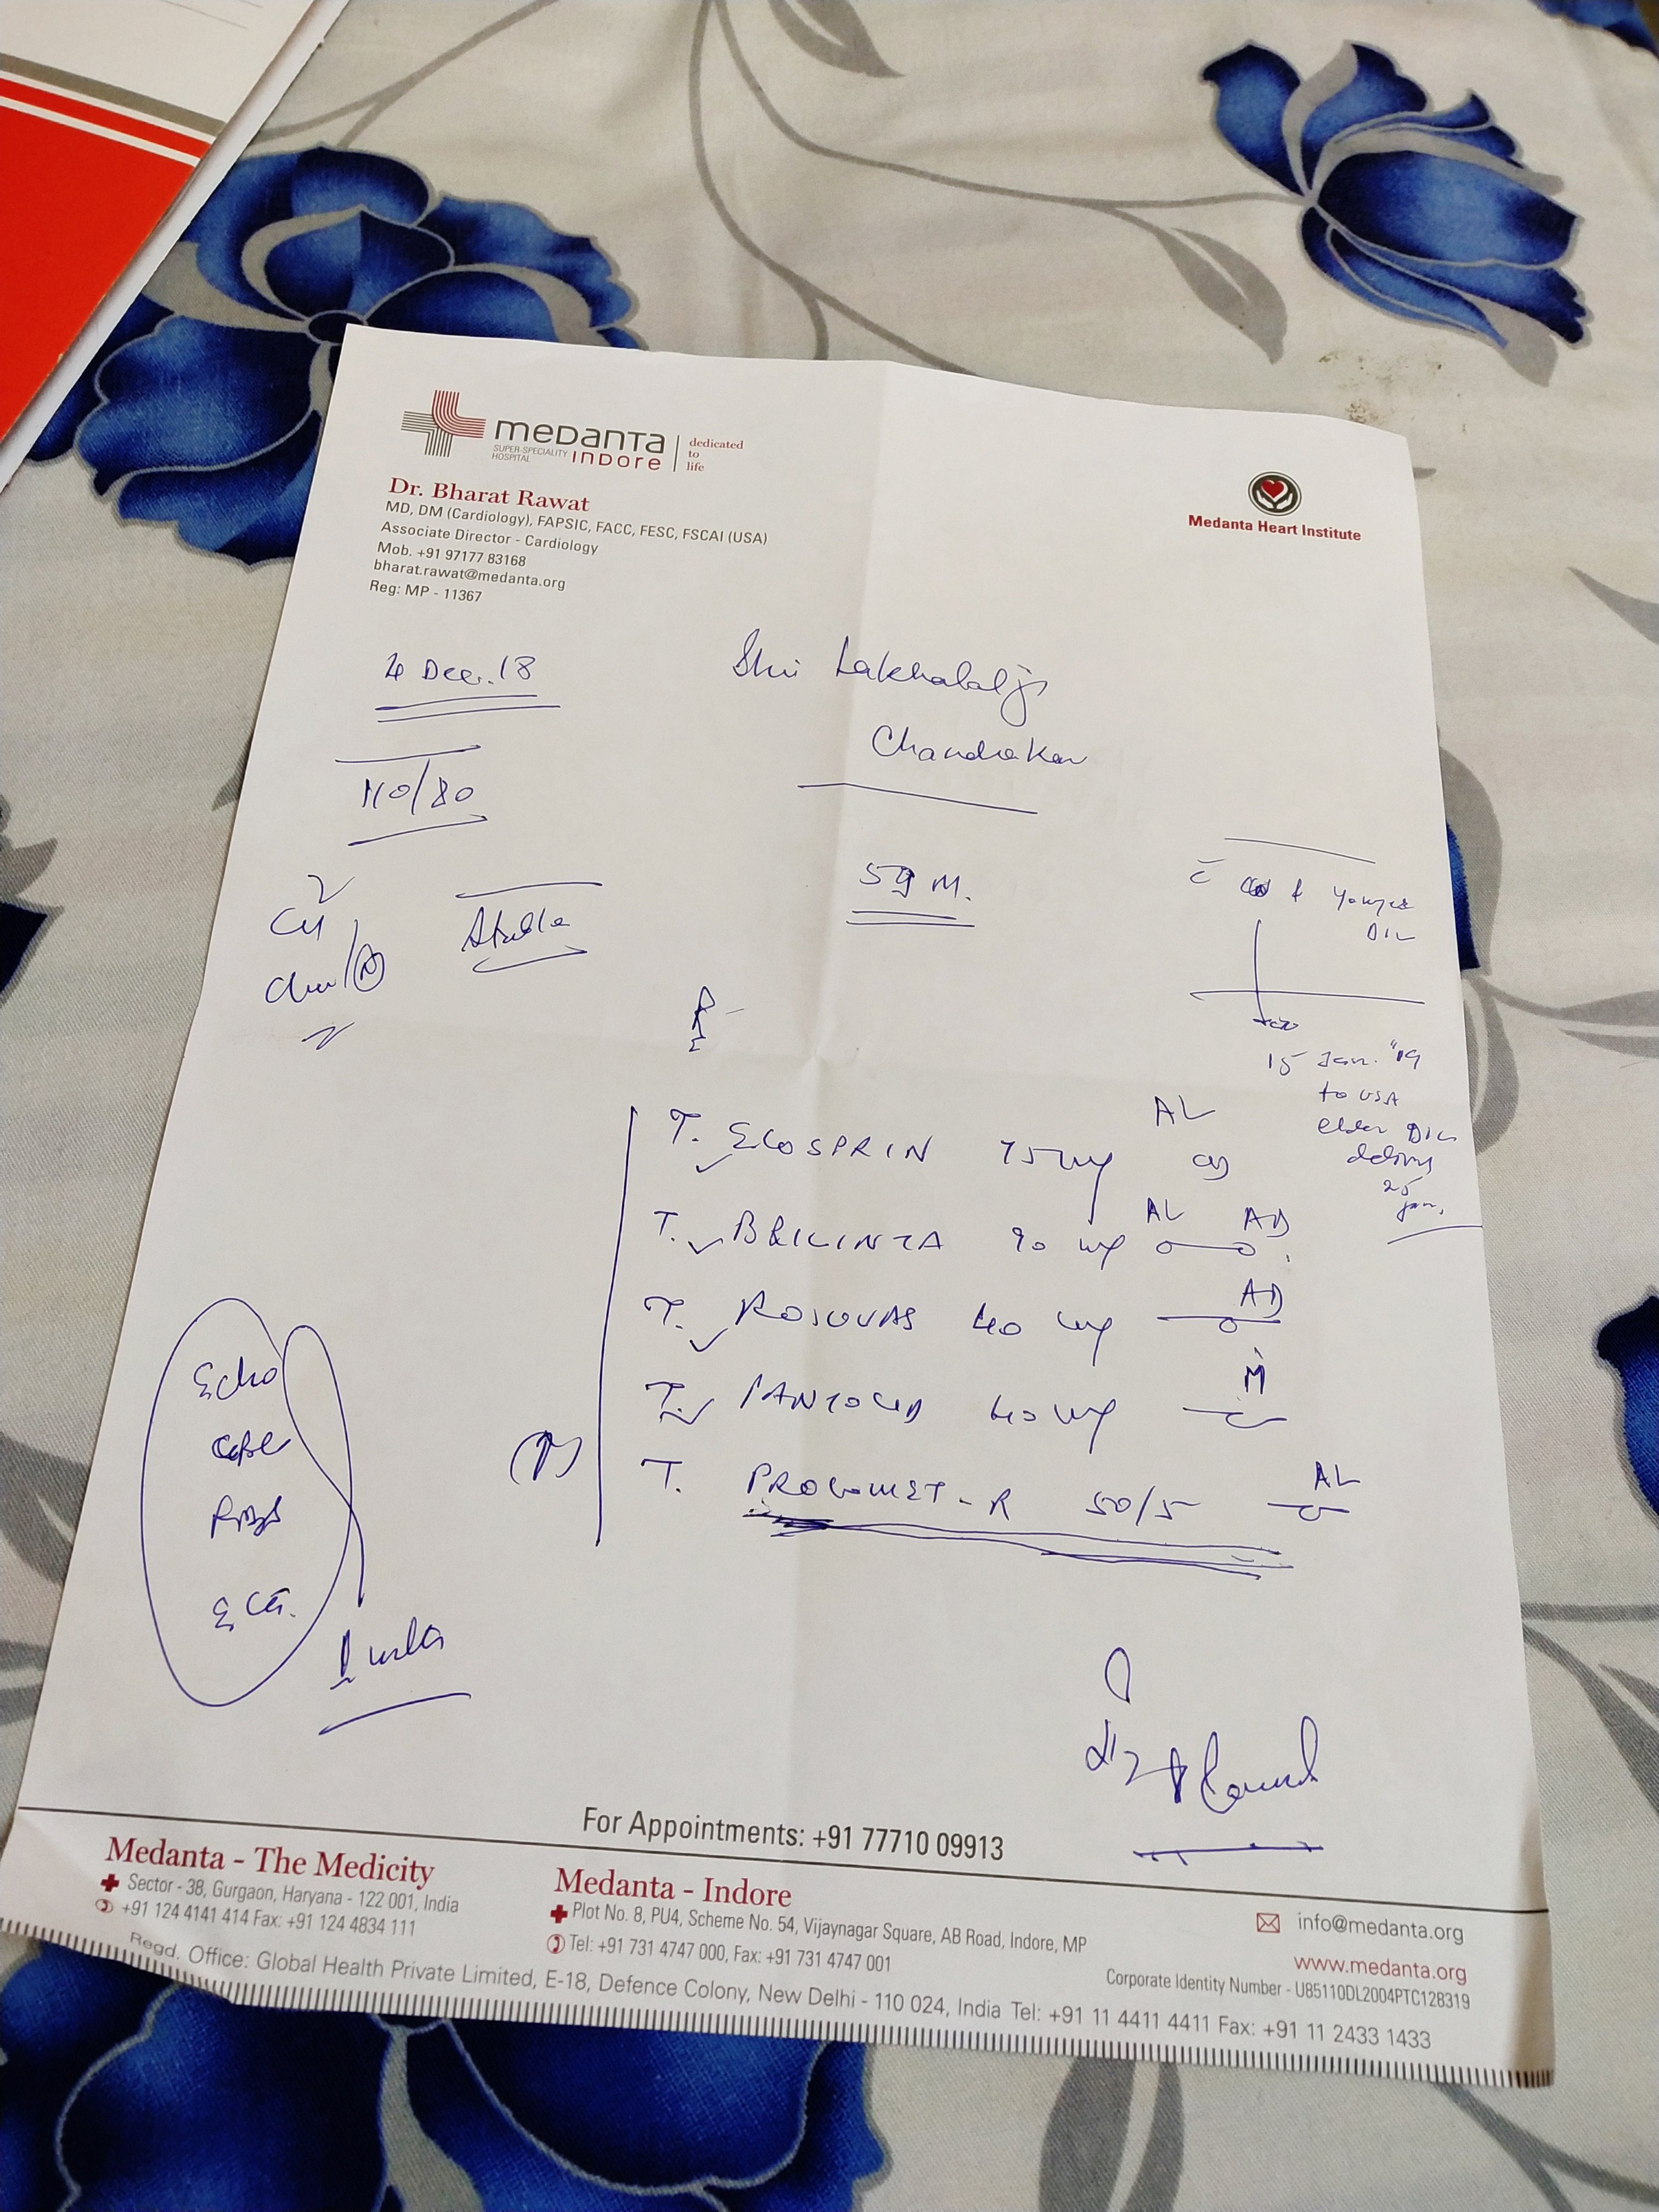 medanta
SUPER-SPECIALITY HOSPITAL INDORE
dedicated to life
Dr. Bharat Rawat
MD, DM (Cardiology), FAPSIC, FACC, FESC, FSCAI (USA)
Associate Director - Cardiology
Mob. +91 97177 83168
bharat.rawat@medanta.org
Reg: MP - 11367
Medanta Heart Institute
4 Dec. 18
Shri Lakhalalji
Chandrakar
110/80
59 M.
Stable
younger
DIL
15 Jan. "19
to USA
elder DIL
delivery
25
Jan.
T. ECOSPRIN 75 mg AL OD
T. BRILINTA 90 mg AL AD
T. ROSUVAS 40 mg AD
T. PANTOCID 40 mg M
T. PROLOMET-R 50/5 AL
Echo
CBC
RBS
ECG.
For Appointments: +91 77710 09913
Medanta - The Medicity
Sector - 38, Gurgaon, Haryana - 122 001, India
+91 124 4141 414 Fax: +91 124 4834 111
Medanta - Indore
Plot No. 8, PU4, Scheme No. 54, Vijaynagar Square, AB Road, Indore, MP
Tel: +91 731 4747 000, Fax: +91 731 4747 001
info@medanta.org
www.medanta.org
Corporate Identity Number - U85110DL2004PTC128319
Regd. Office: Global Health Private Limited, E-18, Defence Colony, New Delhi - 110 024, India Tel: +91 11 4411 4411 Fax: +91 11 2433 1433